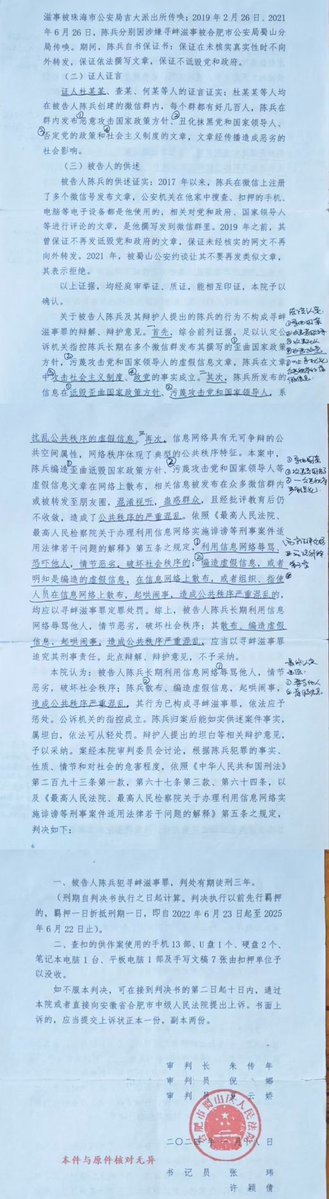 滋事被珠海市公安局吉大派出所传唤；2019年2月26日、2021
年6月26日，陈兵分别因涉嫌寻衅滋事被合肥市公安局蜀山分
局传唤。期间，陈兵自书保证书：保证在未核实真实性时不向
外转发，保证依法依规发文，保证不诋毁党和政府。
（二）证人证言
证人杜某某、查某、何某等人的证言证实：杜某某等人均
在被告人陈兵创建的微信群内，每个群都有好几百人，陈兵在
群内发布恶意攻击国家政策方针、丑化抹黑党和国家领导人、
否定党的政策和社会主义制度的文章，文章经传播造成恶劣的
社会影响。
（三）被告人的供述
被告人陈兵的供述证实：2017年以来，陈兵在微信上注册
了多个微信号发布文章，公安机关在他家中搜查、扣押的手机、
电脑等电子设备都是他使用的，相关对党和政府、国家领导人
等进行评论的文章，是他撰写发到微信群里。2019年之前，其
曾保证不再发诋毁党和政府的文章，保证未经核实的网文不再
向外转发。2021年，被蜀山公安约谈让其不要再发类似文章，
其表示拒绝。
以上证据，均经庭审举证、质证，能相互印证，本院予以
确认。
关于被告人陈兵及其辩护人提出的陈兵的行为不构成寻衅
滋事罪的辩解、辩护意见。首先，综合前列证据，足以认定公
诉机关指控陈兵长期在多个微信群发布其撰写的歪曲国家政策
方针、污蔑攻击党和国家领导人的虚假信息文章，陈兵在文章
中攻击社会主义制度、政党的事实成立。其次，陈兵所发布的
信息在诋毁歪曲国家政策方针、污蔑攻击党和国家领导人，系
扰乱公共秩序的虚假信息。再次，信息网络具有无可争辩的公
共空间属性，网络秩序体现了典型的公共秩序特征。本案中，
陈兵编造歪曲诋毁国家政策方针、污蔑攻击党和国家领导人等
虚假信息文章在网络上散布，相关信息被发布在众多微信群内
或被转发至朋友圈，混淆视听，蛊惑群众，且经批评教育后仍
不收敛，造成了公共秩序的严重混乱，依照《最高人民法院、
最高人民检察院关于办理利用信息网络实施诽谤等刑事案件适
用法律若干问题的解释》第五条之规定，利用信息网络辱骂、
恐吓他人，情节恶劣，破坏社会秩序的；编造虚假信息，或者
明知是编造的虚假信息，在信息网络上散布，或者组织、指使
人员在信息网络上散布，起哄闹事，造成公共秩序严重混乱的，
均应以寻衅滋事罪定罪处罚。综上，被告人陈兵长期利用信息
网络辱骂他人，情节恶劣，破坏社会秩序；其散布、编造虚假
信息，起哄闹事，造成公共秩序严重混乱，应当以寻衅滋事罪
追究其刑事责任。此点辩解、辩护意见，不予采纳。
本院认为：被告人陈兵长期利用信息网络辱骂他人，情节
恶劣，破坏社会秩序；陈兵散布、编造虚假信息，起哄闹事，
造成公共秩序严重混乱，其行为已构成寻衅滋事罪，依法应予
惩处。公诉机关的指控成立。陈兵归案后能如实供述案件事实，
属坦白，依法可从轻处罚。辩护人提出的坦白等相关辩护意见，
予以采纳。案经本院审判委员会讨论，根据陈兵犯罪的事实、
性质、情节和对社会的危害程度，依照《中华人民共和国刑法》
第二百九十三条第一款，第六十七条第三款、第六十四条，以
及《最高人民法院、最高人民检察院关于办理利用信息网络实
施诽谤等刑事案件适用法律若干问题的解释》第五条之规定，
判决如下：
6
一、被告人陈兵犯寻衅滋事罪，判处有期徒刑三年。
（刑期自判决书执行之日起计算。判决执行以前先行羁押
的，羁押一日折抵刑期一日，即自2022年6月23日起至2025
年6月22日止）。
二、查扣的供作案使用的手机13部、U盘1个、硬盘2个、
笔记本电脑1台、平板电脑1部及手写文稿7张由扣押单位予
以没收。
如不服本判决，可在接到判决书的第二日起十日内，通过
本院或者直接向安徽省合肥市中级人民法院提出上诉。书面上
诉的，应当提交上诉状正本一份，副本两份。
审 判 长 朱 传 年
审 判 员 倪 娜
审 判 员 云 娇
合肥市蜀山区人民法院
本件与原件核对无异
书 记 员 张 玮
许 颖 倩